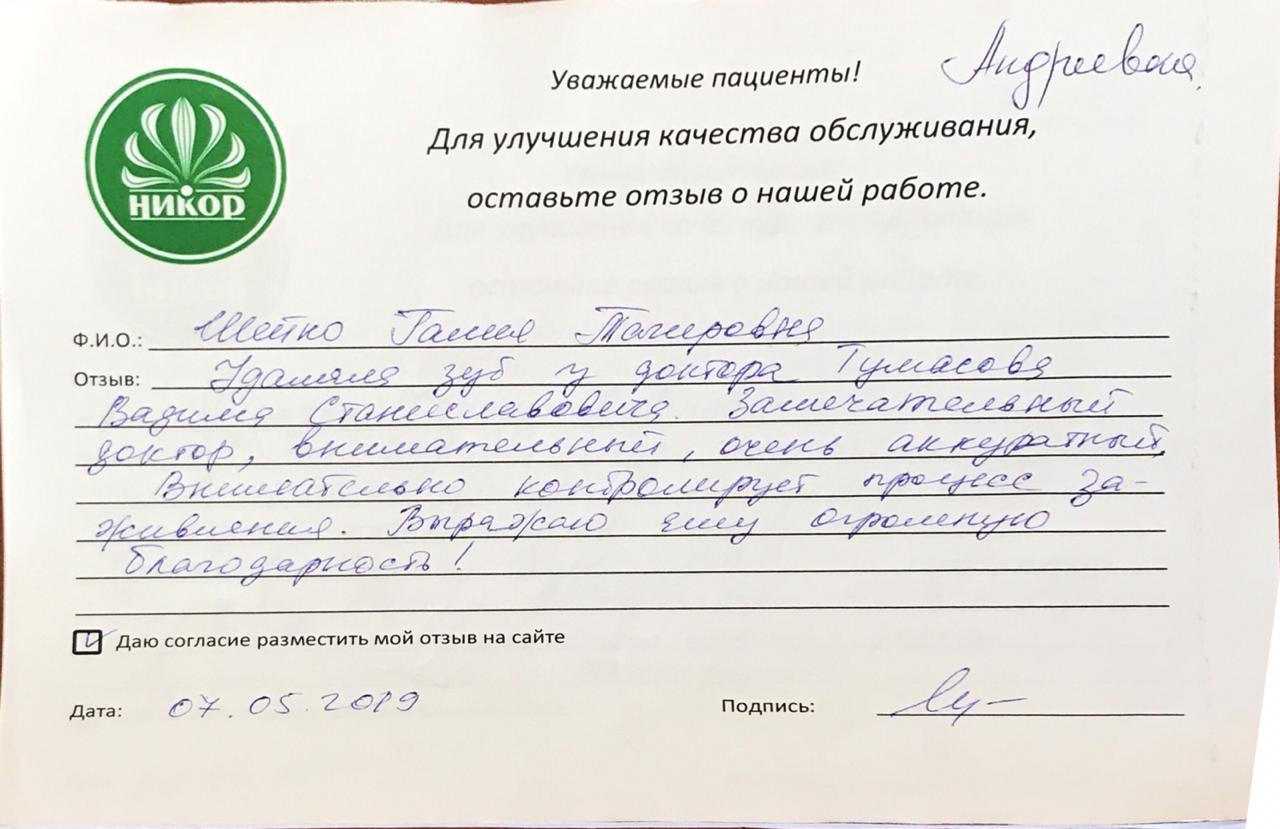 Андреевская
Уважаемые пациенты!
Для улучшения качества обслуживания,
оставьте отзыв о нашей работе.
НИКОР
Ф.И.О.: Шейко Галия Тагировна
Отзыв: Удаляла зуб у доктора Тумасова
Вадима Станиславовича. Замечательный
доктор, внимательный, очень аккуратный.
Внимательно контролирует процесс за-
живления. Выражаю ему огромную
благодарность!
Даю согласие разместить мой отзыв на сайте
Дата: 07.05.2019
Подпись: